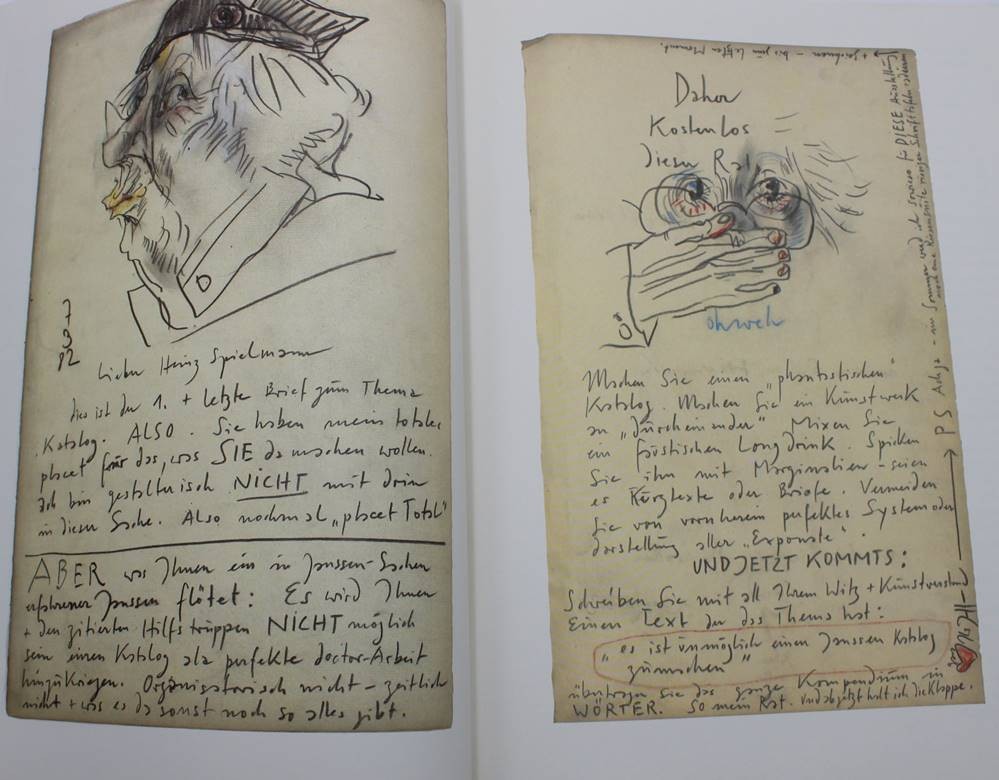 7
9
82
Lieber Heinz Spielmann
dies ist der 1. + letzte Brief zum Thema
Katalog. ALSO. Sie haben mein totales
placet für das, was SIE da machen wollen.
Ich bin gestalterisch NICHT mit drin
in dieser Sache. Also nochmal „placet Total"
ABER was Ihnen ein in Janssen-Sachen
erfahrener Janssen flötet: Es wird Ihnen
+ den zitierten Hilfstruppen NICHT möglich
sein einen Katalog als perfekte doctor-Arbeit
hinzukriegen. Organisatorisch nicht – zeitlich
nicht + was es da sonst noch so alles gibt.
Daher
Kostenlos
dieser Rat.
ohweh
Machen Sie einen „phantastischen"
Katalog. Machen Sie ein Kunstwerk
an „durcheinander" Mixen Sie
ein Longdrink. Spicken
Sie ihn mit Marginalien – seien
es Kurztexte oder Briefe. Vermeiden
Sie von vornherein perfektes System oder
darstellung aller „Exponate".
UND JETZT KOMMTS:
Schreiben Sie mit all Ihrem Witz + Kunstverstand
Einen Text der das Thema hat:
„es ist unmöglich einen Janssen Katalog
zumachen"
übertragen sie das ganze Kompendium in
WÖRTER. So mein Rat. Und ab jetzt halt ich die Klappe.
PS
im Sommer werd ich sowieso für DIESE Ausstellung
+ zeichnen – bis zum letzten Moment.